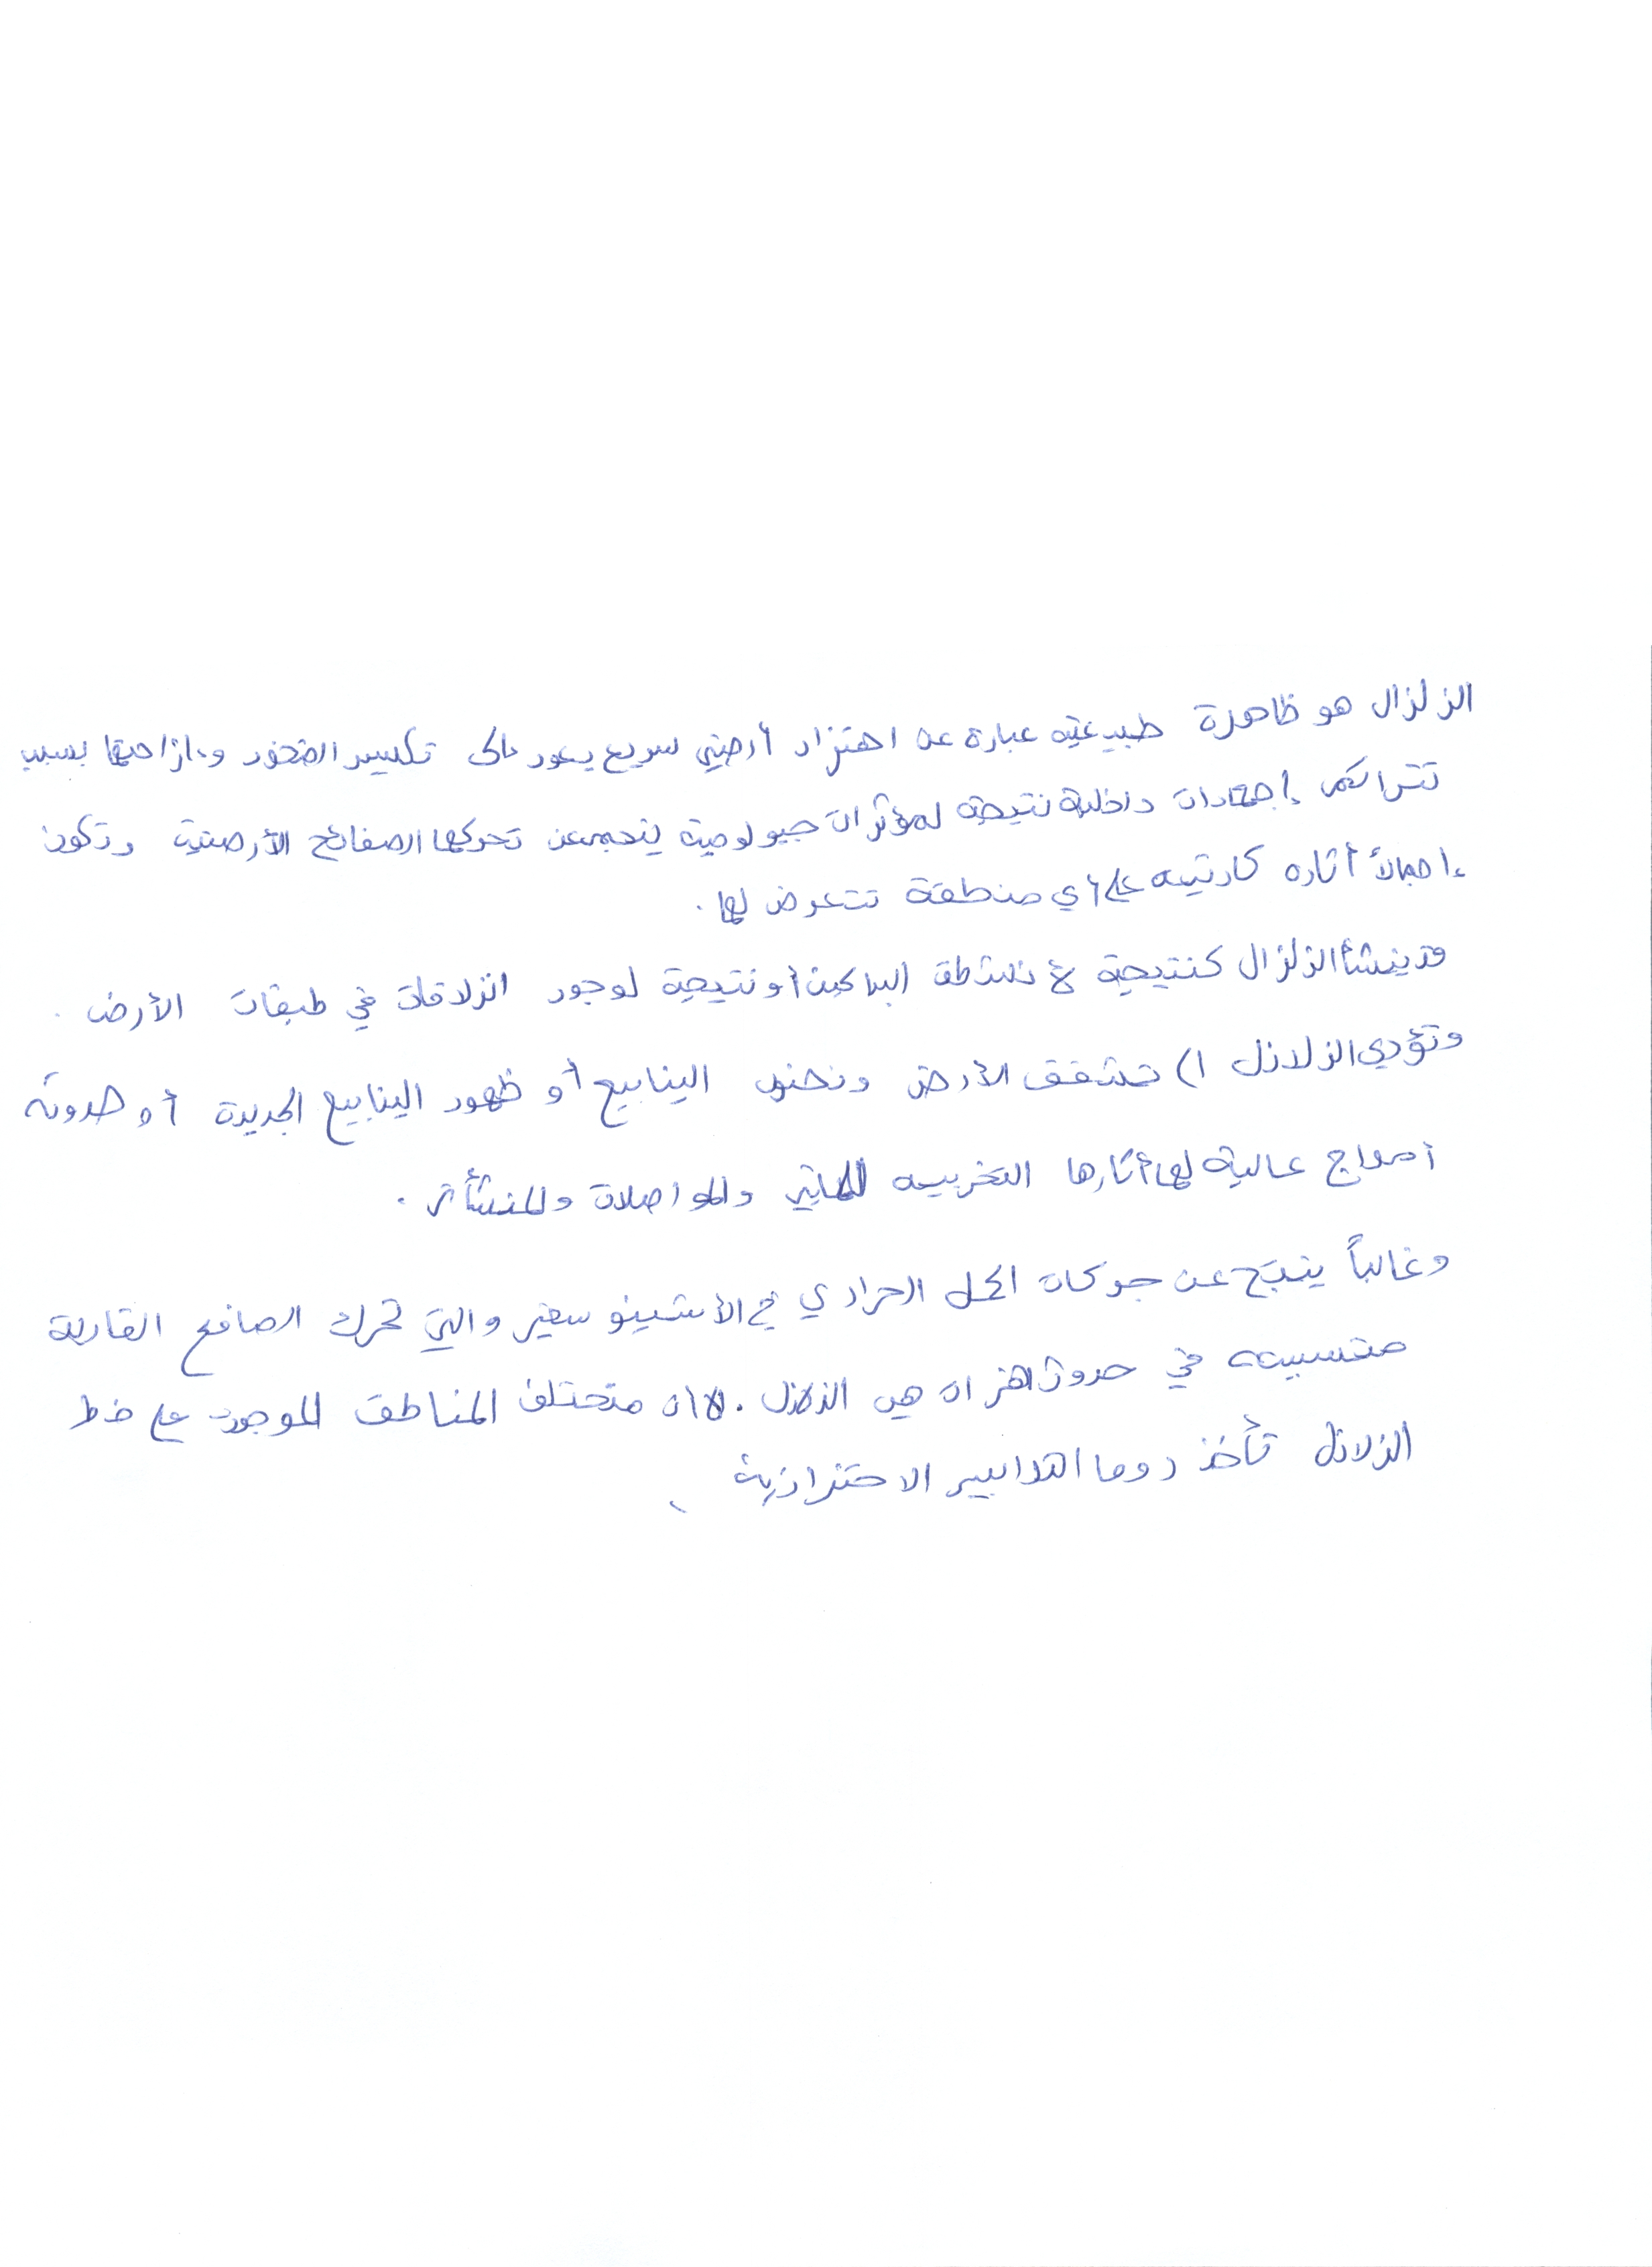 الزلزال هو ظاهرة طبيعية عبارة عن اهتزاز أرضي سريع يعود إلى تكسير الصخور وإزاحتها بسبب
تتراكم إجهادات داخلية نتيجة لمؤثرات جيولوجية ينجم عن تحركها الصفائح الأرضية وتكون
إجمالاً أثاره كارثية على أي منطقة تتعرض لها.
قد ينشأ الزلزال كنتيجة لأنشطة البراكين أو نتيجة لوجود انزلاقات في طبقات الأرض.
وتؤدي الزلازل تشقق الأرض ونضوب الينابيع أو ظهور الينابيع الجديدة أو حدوث
أمواج عالية لها أثارها التخريبية للمباني والمواصلات والمنشأت.
وغالباً ينتج عن حركات الحمل الحراري في الأستينوسفير والتي تحرك الصافح القارية
متسببة في حدوث اهزات هي الزلازل. متختلف المناطق الموجودة على خط
الزلازل تأخذ دوما التدابير الاحترازية